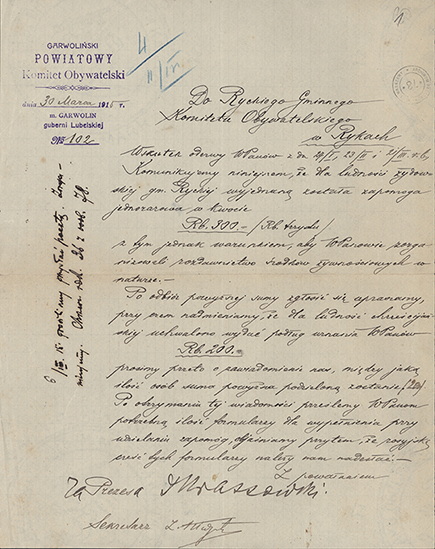 GARWOLIŃSKI
POWIATOWY
Komitet Obywatelski
dnia 30 Marca 1915 r.
m. GARWOLIN
guberni Lubelskiej
№ 102
4/II
Do Ryckiego Gminnego
Komitetu Obywatelskiego
w Rykach
Wskutek odezwy WPanów z dn
Komunikujemy niniejszem, że dla ludności żydow-
skiej gm. Ryckiej wyjednaną została zapomoga
jednorazowa w kwocie
Rb. 300.— /Rb. trzysta/
z tym jednak warunkiem, aby WPanowie zorga-
nizowali rozdawnictwo środków żywnościowych w
naturze.—
Po odbiór powyższej sumy zgłosić się upraszamy,
przy czem nadmieniamy, że dla ludności chrześcijań-
skiej uchwalono wydać podług uznania WPanów
Rb. 200.—
prosimy przeto o zawiadomienie nas, między jaką
ilość osób suma powyższa podzieloną zostanie.
Po otrzymaniu tej wiadomości prześlemy WPanom
potrzebną ilość formularzy dla wypełnienia przy
udzielaniu zapomóg, objaśniamy przytem, że
część tych formularzy należy nam nadesłać.—
Z poważaniem
Za Prezesa
Sekretarz